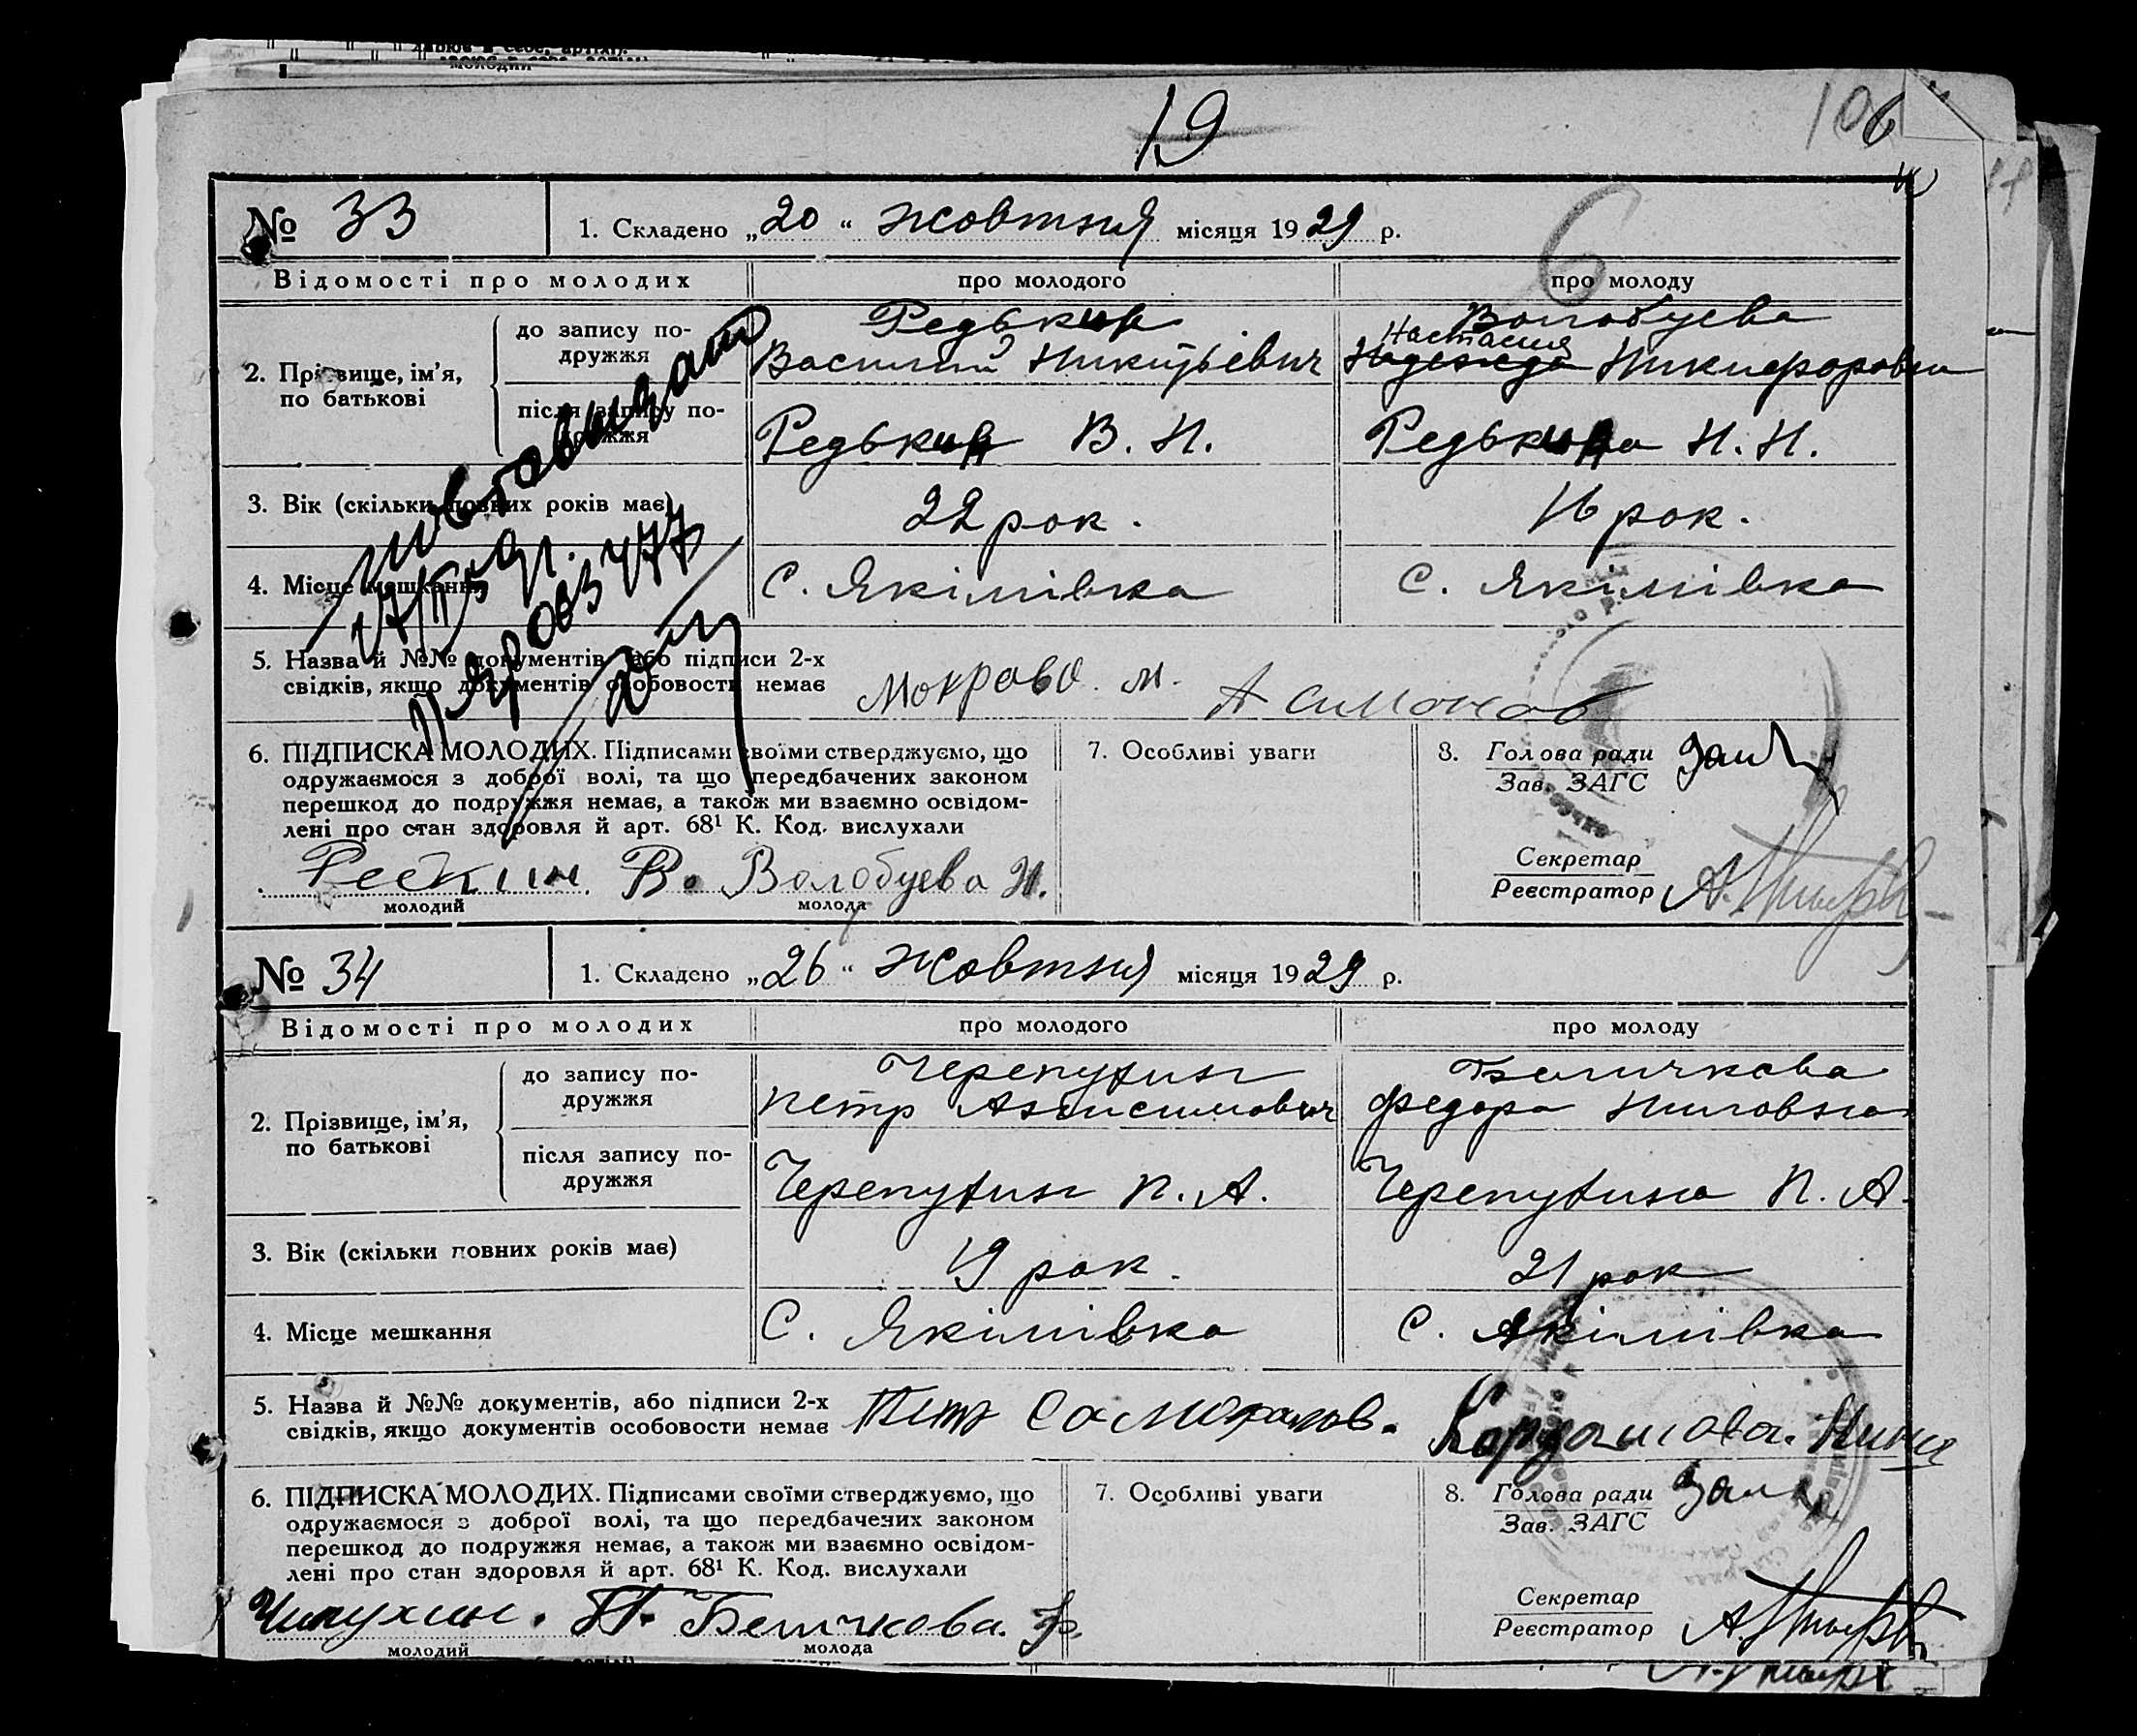 19
106
№ 33
1. Складено „20“ жовтня місяця 1929 р.
Відомості про молодих
про молодого
про молоду
2. Прізвище, ім’я, по батькові
до запису подружжя
Редькин
Василий Никитьевич
Волобуева
Настасия
Надежда Никифоровна
після запису подружжя
Редькин В. Н.
Редькина Н. Н.
3. Вік (скільки повних років має)
22 рок.
16 рок.
4. Місце мешкання
С. Якімівка
С. Якімівка
5. Назва й №№ документів, або підписи 2-х
свідків, якщо документів особовости немає
Мокрово. м.
А Симонов
6. ПІДПИСКА МОЛОДИХ. Підписами своїми стверджуємо, що
одружаємося з доброї волі, та що передбачених законом
перешкод до подружжя немає, а також ми взаємно освідом-
лені про стан здоровля й арт. 68¹ К. Код. вислухали
Редкин В. Волобуева Н.
молодий
молода
7. Особливі уваги
8. Голова ради
Зав. ЗАГС
Секретар
Реєстратор
№ 34
1. Складено „26“ жовтня місяця 1929 р.
Відомості про молодих
про молодого
про молоду
2. Прізвище, ім’я, по батькові
до запису подружжя
Черепухин
Петр Анисимович
Беличкова
Федора Ниловна
після запису подружжя
Черепухин П. А.
Черепухина П. А.
3. Вік (скільки повних років має)
19 рок.
21 рок
4. Місце мешкання
С. Якімівка
С. Якімівка
5. Назва й №№ документів, або підписи 2-х
свідків, якщо документів особовости немає
Кардашова. Нина
6. ПІДПИСКА МОЛОДИХ. Підписами своїми стверджуємо, що
одружаємося з доброї волі, та що передбачених законом
перешкод до подружжя немає, а також ми взаємно освідом-
лені про стан здоровля й арт. 68¹ К. Код. вислухали
Чипухин. П. Беличкова. Ф.
молодий
молода
7. Особливі уваги
8. Голова ради
Зав. ЗАГС
Секретар
Реєстратор